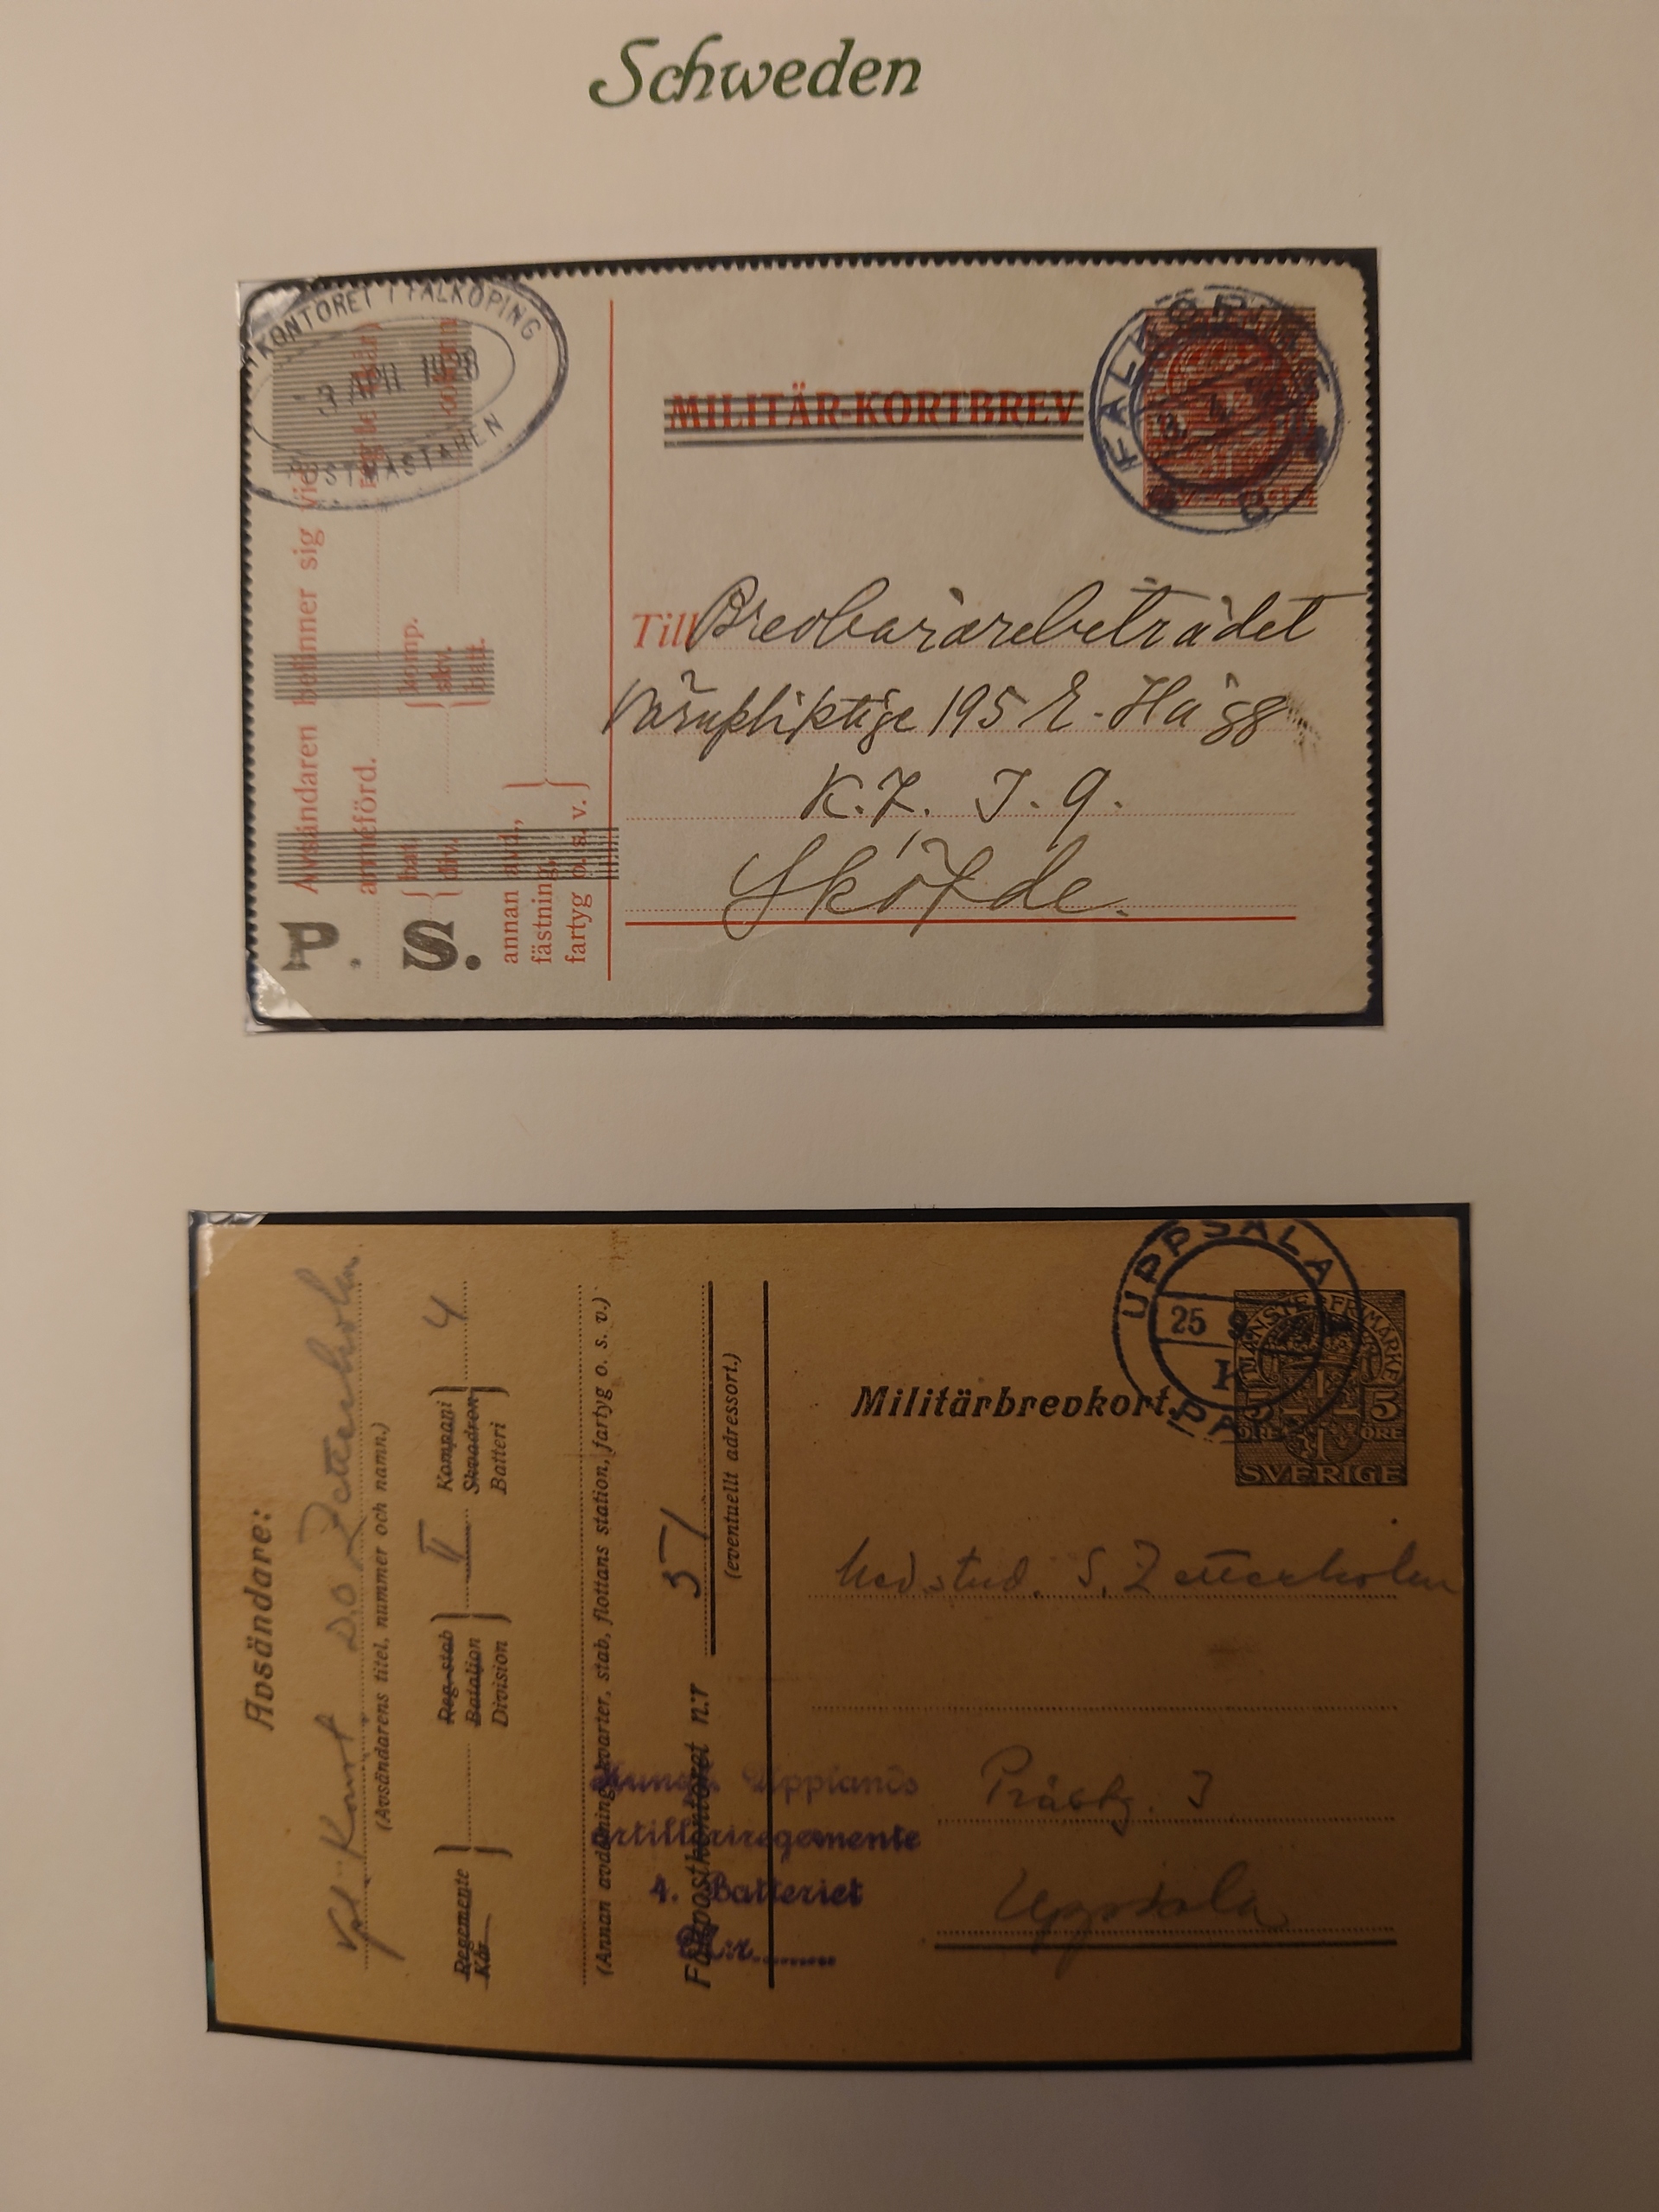 Schweden
KONTORET I FALKÖPING
3 APR 1928
POSTMÄSTAREN
MILITÄR-KORTBREV
FALKÖPING
C
Avsändaren befinner sig vid
arméförd.
bat.
div.
komp.
skv.
batt.
annan avd.,
fästning,
fartyg o. s. v.
P. S.
Till Brevbärarebeträdet
Värnpliktige 195 E. Hägg
K. I. 9.
Sköfde.
Avsändare:
Vpl. Zetterholm
(Avsändarens titel, nummer och namn.)
Regemente
Kår
Reg.-stab
Bataljon
Division
II
Kompani
Skvadron
Batteri
4
(Annan avdelning, kvarter, stab, flottans station, fartyg o. s. v.)
Fältpostkontoret n:r 51
(eventuellt adressort.)
Kungl. Upplands
Artilleriregemente
4. Batteriet
N:r
Militärbrevkort.
UPPSALA
25 9
K
PAK
TJÄNSTEFRIMÄRKE
5 5
ÖRE ÖRE
SVERIGE
Med. stud. S. Zetterholm
Prästg. 3
Uppsala